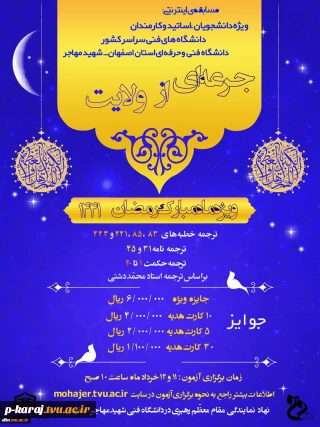 مسابقه‌ی اینترنتی:
ویژه دانشجویان، اساتید و کارمندان
دانشگاه های فنی سراسر کشور
دانشگاه فنی و حرفه‌ای استان اصفهان - شهید مهاجر
جرعه‌ای از ولایت
ویژه ماه مبارک رمضان ۱۴۴۱
ترجمه خطبه‌های ۸۳، ۸۵، ۲۲۱ و ۲۲۳
ترجمه نامه ۳۱ و ۴۵
ترجمه حکمت ۱ تا ۲۰
بر اساس ترجمه استاد محمد دشتی
جوایز
جایزه ویژه ۶/۰۰۰/۰۰۰ ریال
۱۰ کارت هدیه ۴/۰۰۰/۰۰۰ ریال
۵ کارت هدیه ۲/۰۰۰/۰۰۰ ریال
۳۰ کارت هدیه ۱/۱۰۰/۰۰۰ ریال
زمان برگزاری آزمون: ۱۱ و ۱۲ خرداد ماه ساعت ۱۰ صبح
اطلاعات بیشتر راجع به نحوه برگزاری آزمون در سایت mohajer.tvu.ac.ir
نهاد نمایندگی مقام معظم رهبری در دانشگاه فنی شهید مهاجر
p-karaj.tvu.ac.ir